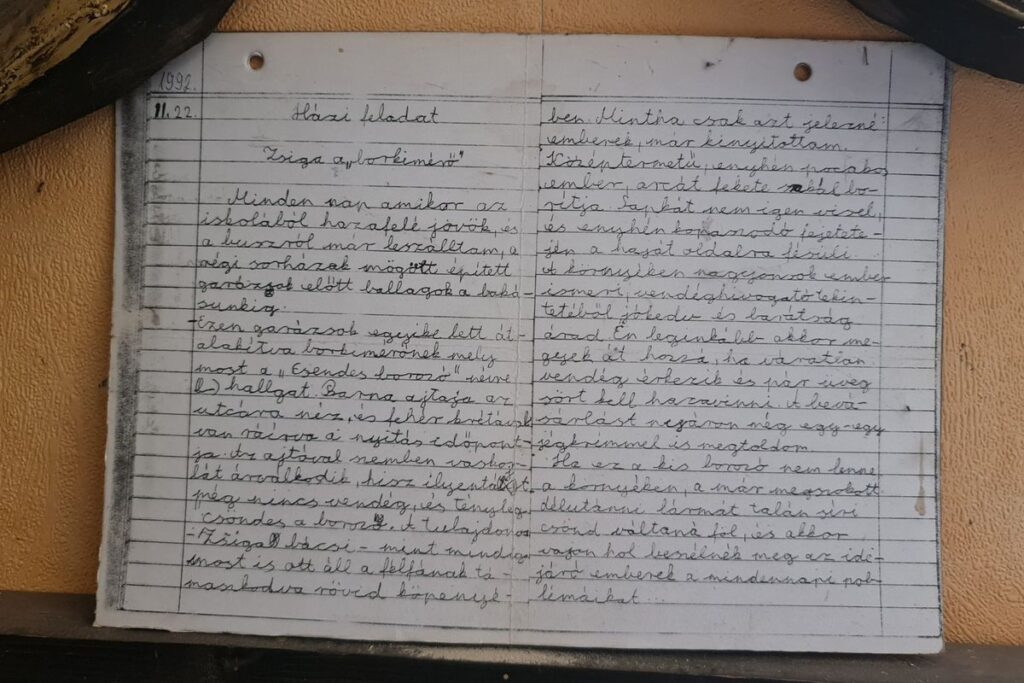 1992.
11. 22.
Házi feladat
Zsiga a „borkimérő"
Minden nap amikor az
iskolából hazafelé jövök, és
a buszról már leszálltam, a
régi sorházak mögött épített
garázsok előtt ballagok a laká-
sunkig.
Ezen garázsok egyike lett át-
alakítva borkimérőnek mely
most a „Csendes borozó" névre
hallgat. Barna ajtaja az
utcára néz, és fehér krétával
van ráírva a nyitás időpont-
ja. Az ajtóval szemben vaskor-
lát árválkodik, hisz ilyentájt
még nincs vendég, és tényleg
csöndes a borozó. A tulajdonos
- Zsiga bácsi - mint mindig
most is ott áll a félfának tá-
maszkodva rövid köpenyé-
ben. Mintha csak azt jelezné
emberek, már kinyitottam.
Középtermetű, enyhén pocakos
ember, arcát fekete szakáll bo-
rítja. Sapkát nem igen visel,
és enyhén kopaszodó fejetete-
jén a haját oldalra fésüli.
A környéken nagyonsok ember
ismeri, vendéghivogató tekin-
tetéből jókedv és barátság
árad. Én leginkább akkor me-
gyek át hozzá, ha váratlan
vendég érkezik és pár üveg
sört kell hazavinni. A bevá-
sárlást nyáron még egy-egy
jégkrémmel is megtoldom.
Ha ez a kis borozó nem lenne
a környéken, a már megszokott
délutánni lármát talán síri
csönd váltaná föl, és akkor
vajon hol beszélnék meg az idé-
járó emberek a mindennapi pob-
lémáikat...